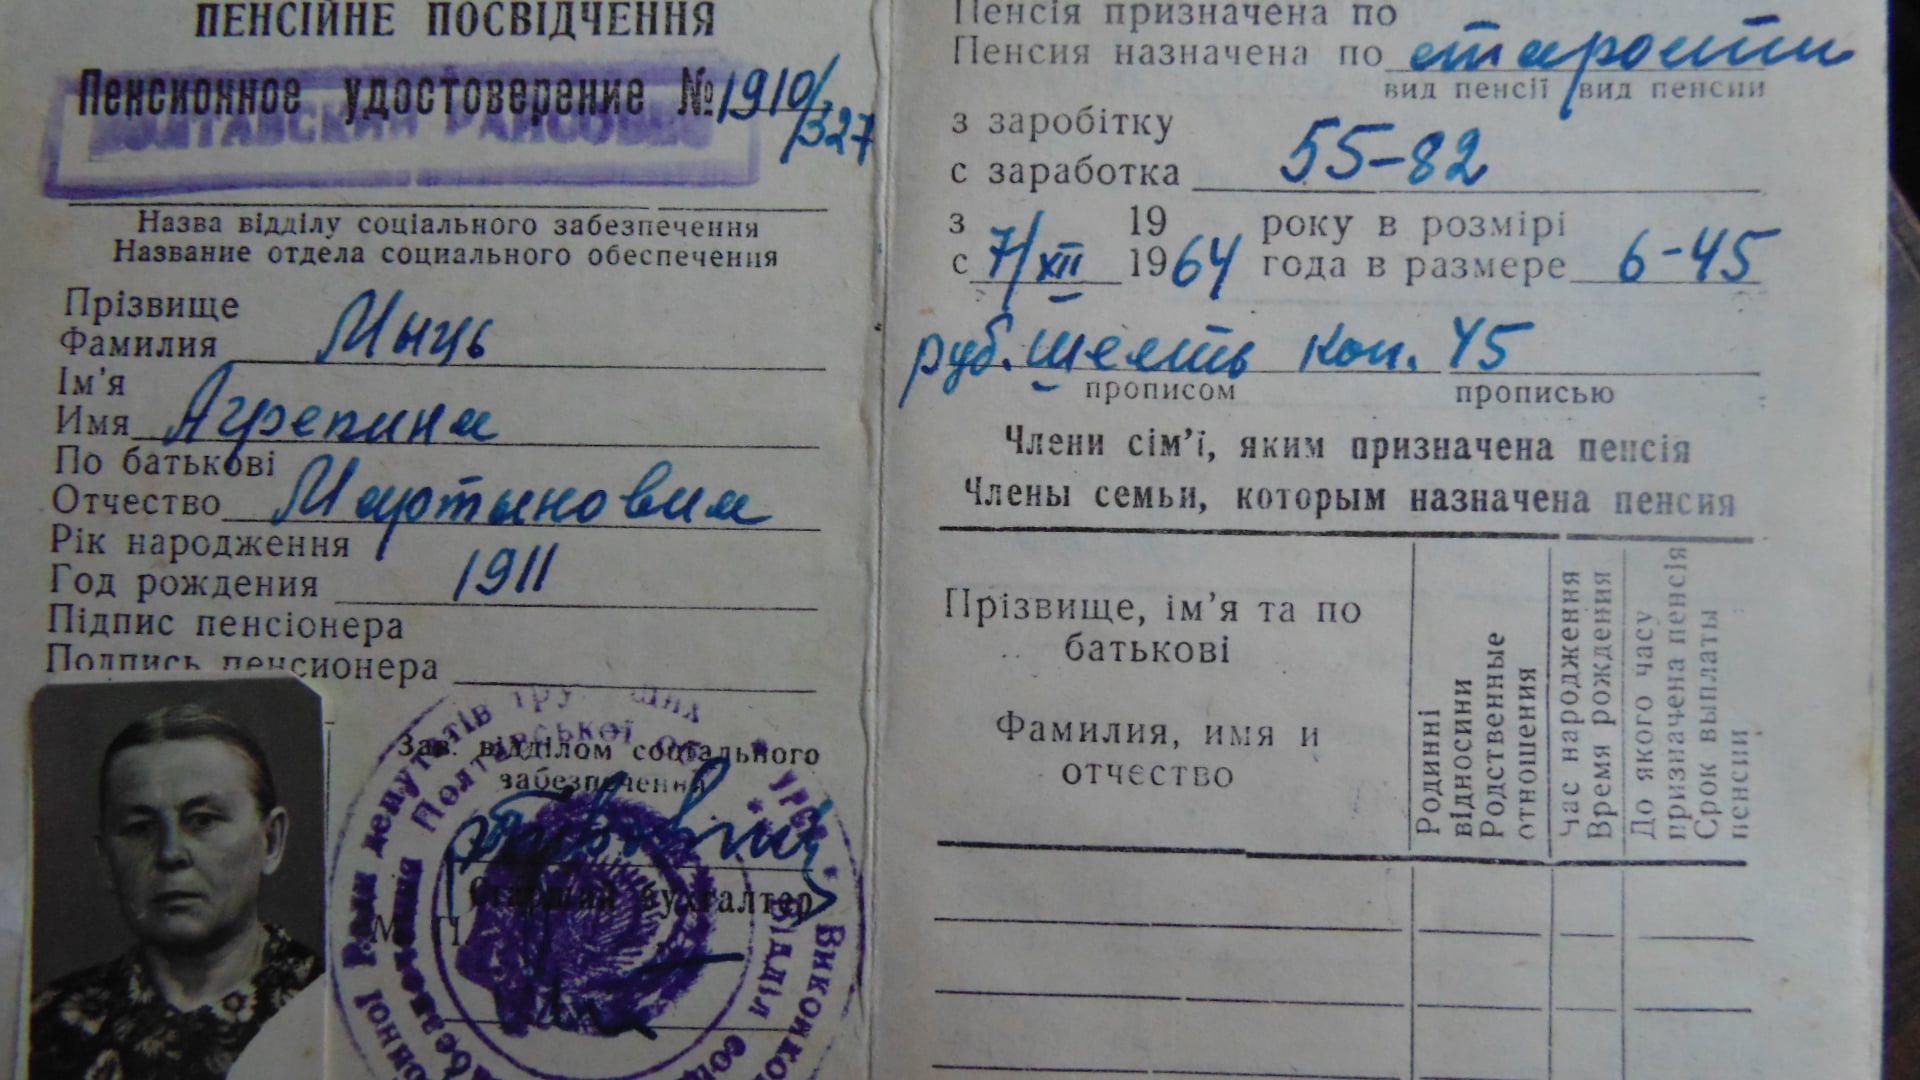 ПЕНСІЙНЕ ПОСВІДЧЕННЯ
Пенсионное удостоверение № 1910/327
ПОЛТАВСКИЙ РАЙСОБЕС
Назва відділу соціального забезпечення
Название отдела социального обеспечения
Прізвище
Фамилия Мыць
Ім'я
Имя Агрепина
По батькові
Отчество Мартыновна
Рік народження
Год рождения 1911
Підпис пенсіонера
Подпись пенсионера
Зав. відділом соціального
забезпечення
Старший бухгалтер
М. П.
Ради депутатів трудящих
Полтавської обл.
УРСР
Виконком
Відділ соц
Пенсія призначена по
Пенсия назначена по старости
вид пенсії / вид пенсии
з заробітку
с заработка 55-82
з 19 року в розмірі
с 7/XII 1964 года в размере 6-45
руб. шесть коп. 45
прописом прописью
Члени сім'ї, яким призначена пенсія
Члены семьи, которым назначена пенсия
Прізвище, ім'я та по
батькові
Фамилия, имя и
отчество
Родинні
відносини
Родственные
отношения
Час народження
Время рождения
До якого часу
призначена пенсія
Срок выплаты
пенсии